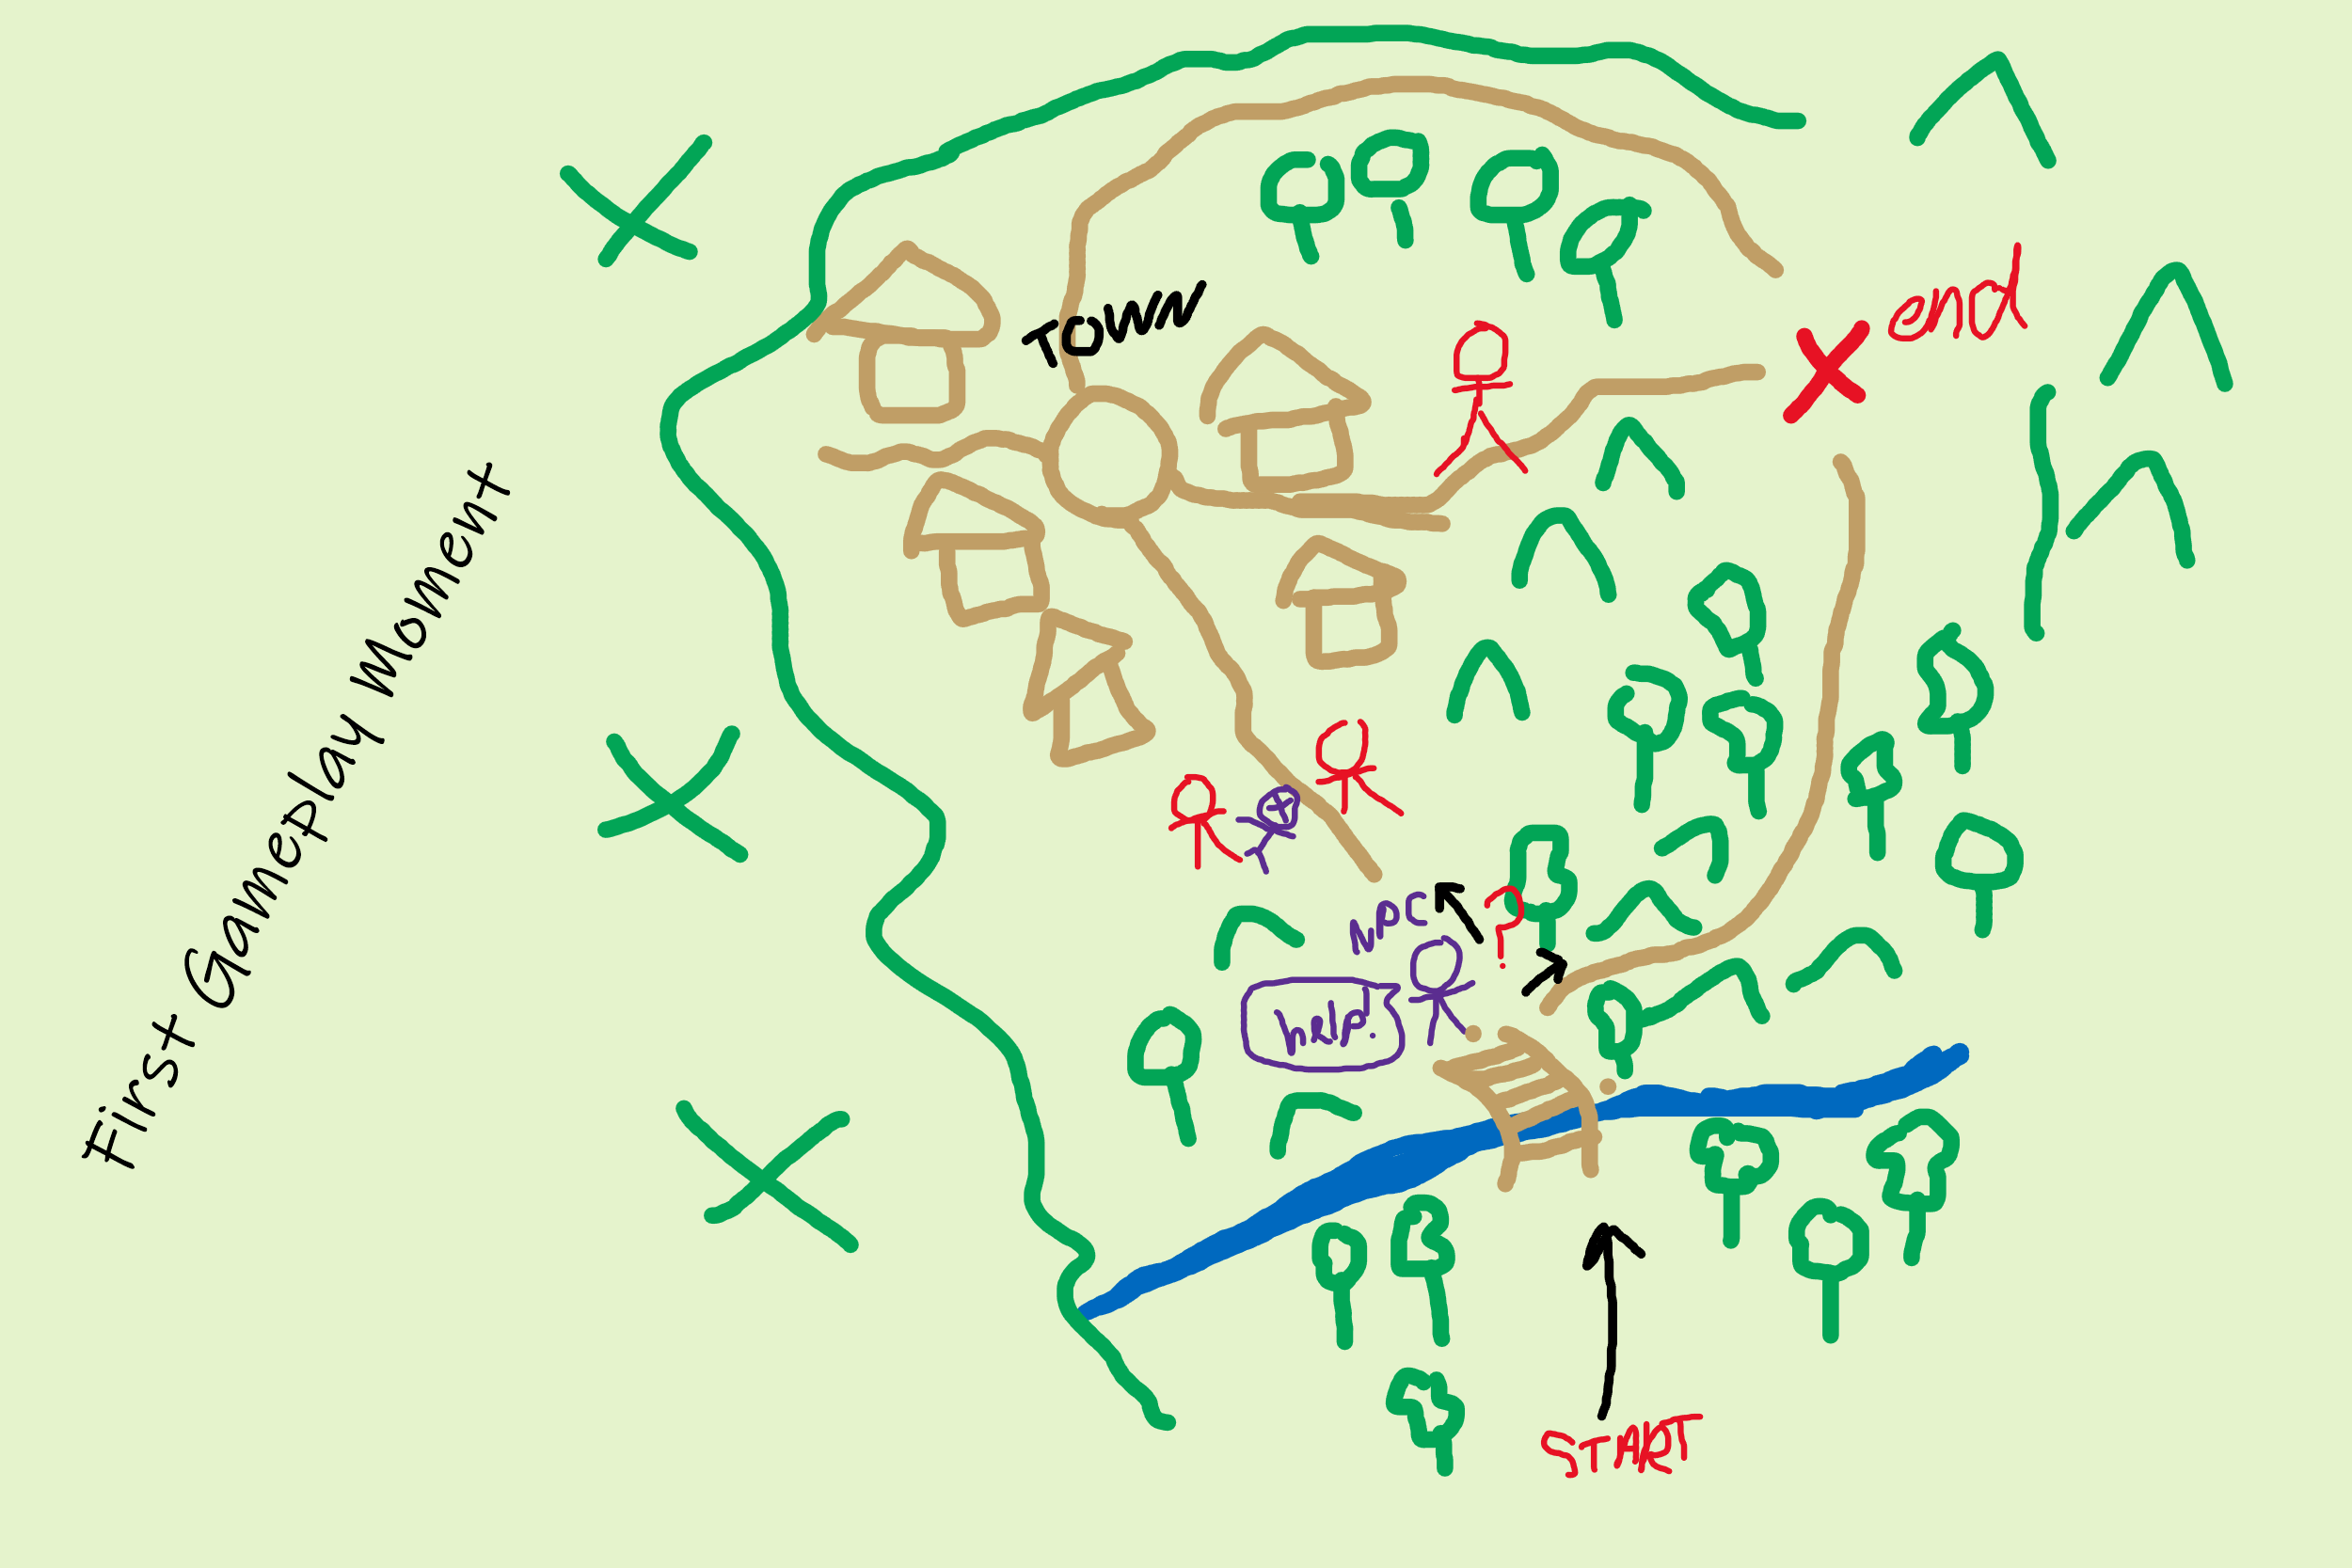 First Gameplay Moment
TOWN
end
NPC
?
Help!
START